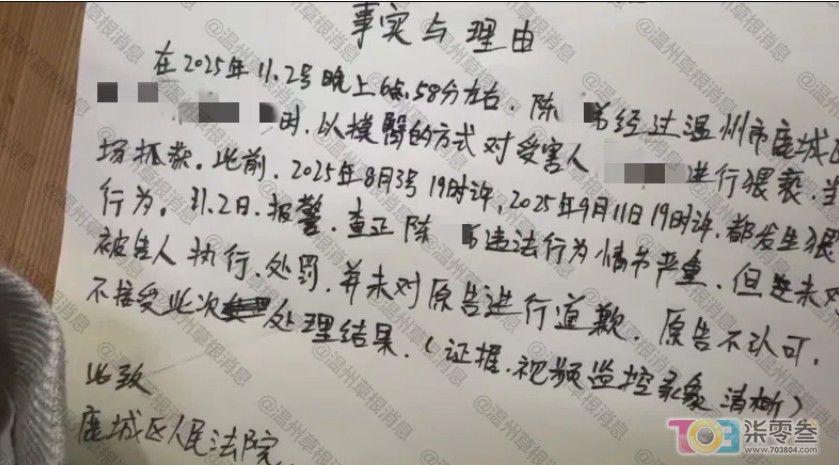 事实与理由
在2025年11.2号晚上6点.58分左右.陈 经过温州市鹿城区
时.以摸臀的方式对受害人 进行猥亵.当
场抓获。此前.2025年8月3号19时许,2025年9月11日19时许.都发生猥
行为。11.2日.报警.查证陈 违法行为情节严重.但是未对
被告人执行.处罚.并未对原告进行道歉.原告不认可.
不接受此次 处理结果.(证据.视频监控录象清晰)
此致
鹿城区人民法院.
@温州草根消息
703
柒零叁
www.703804.com